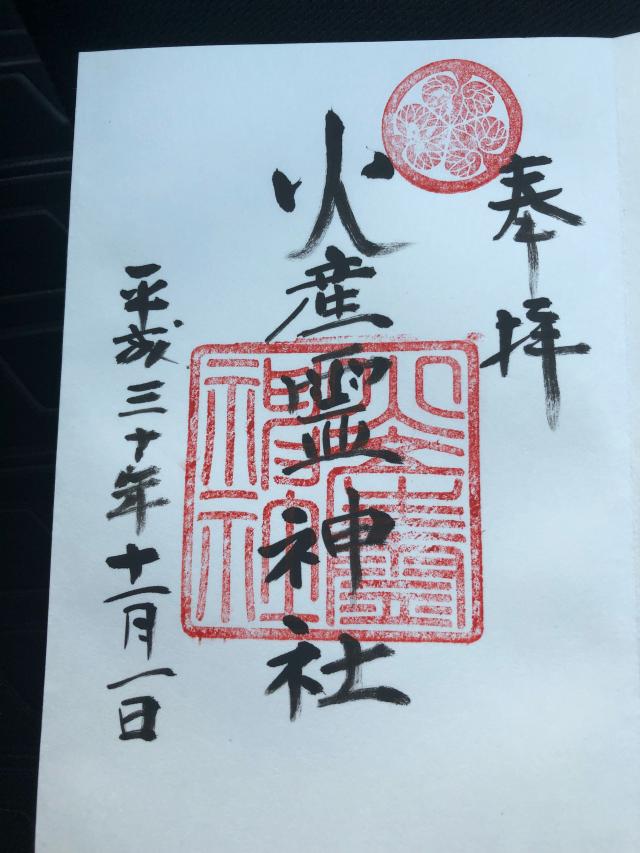 奉拝
火産霊神社
平成三十年十一月一日
火産霊神社